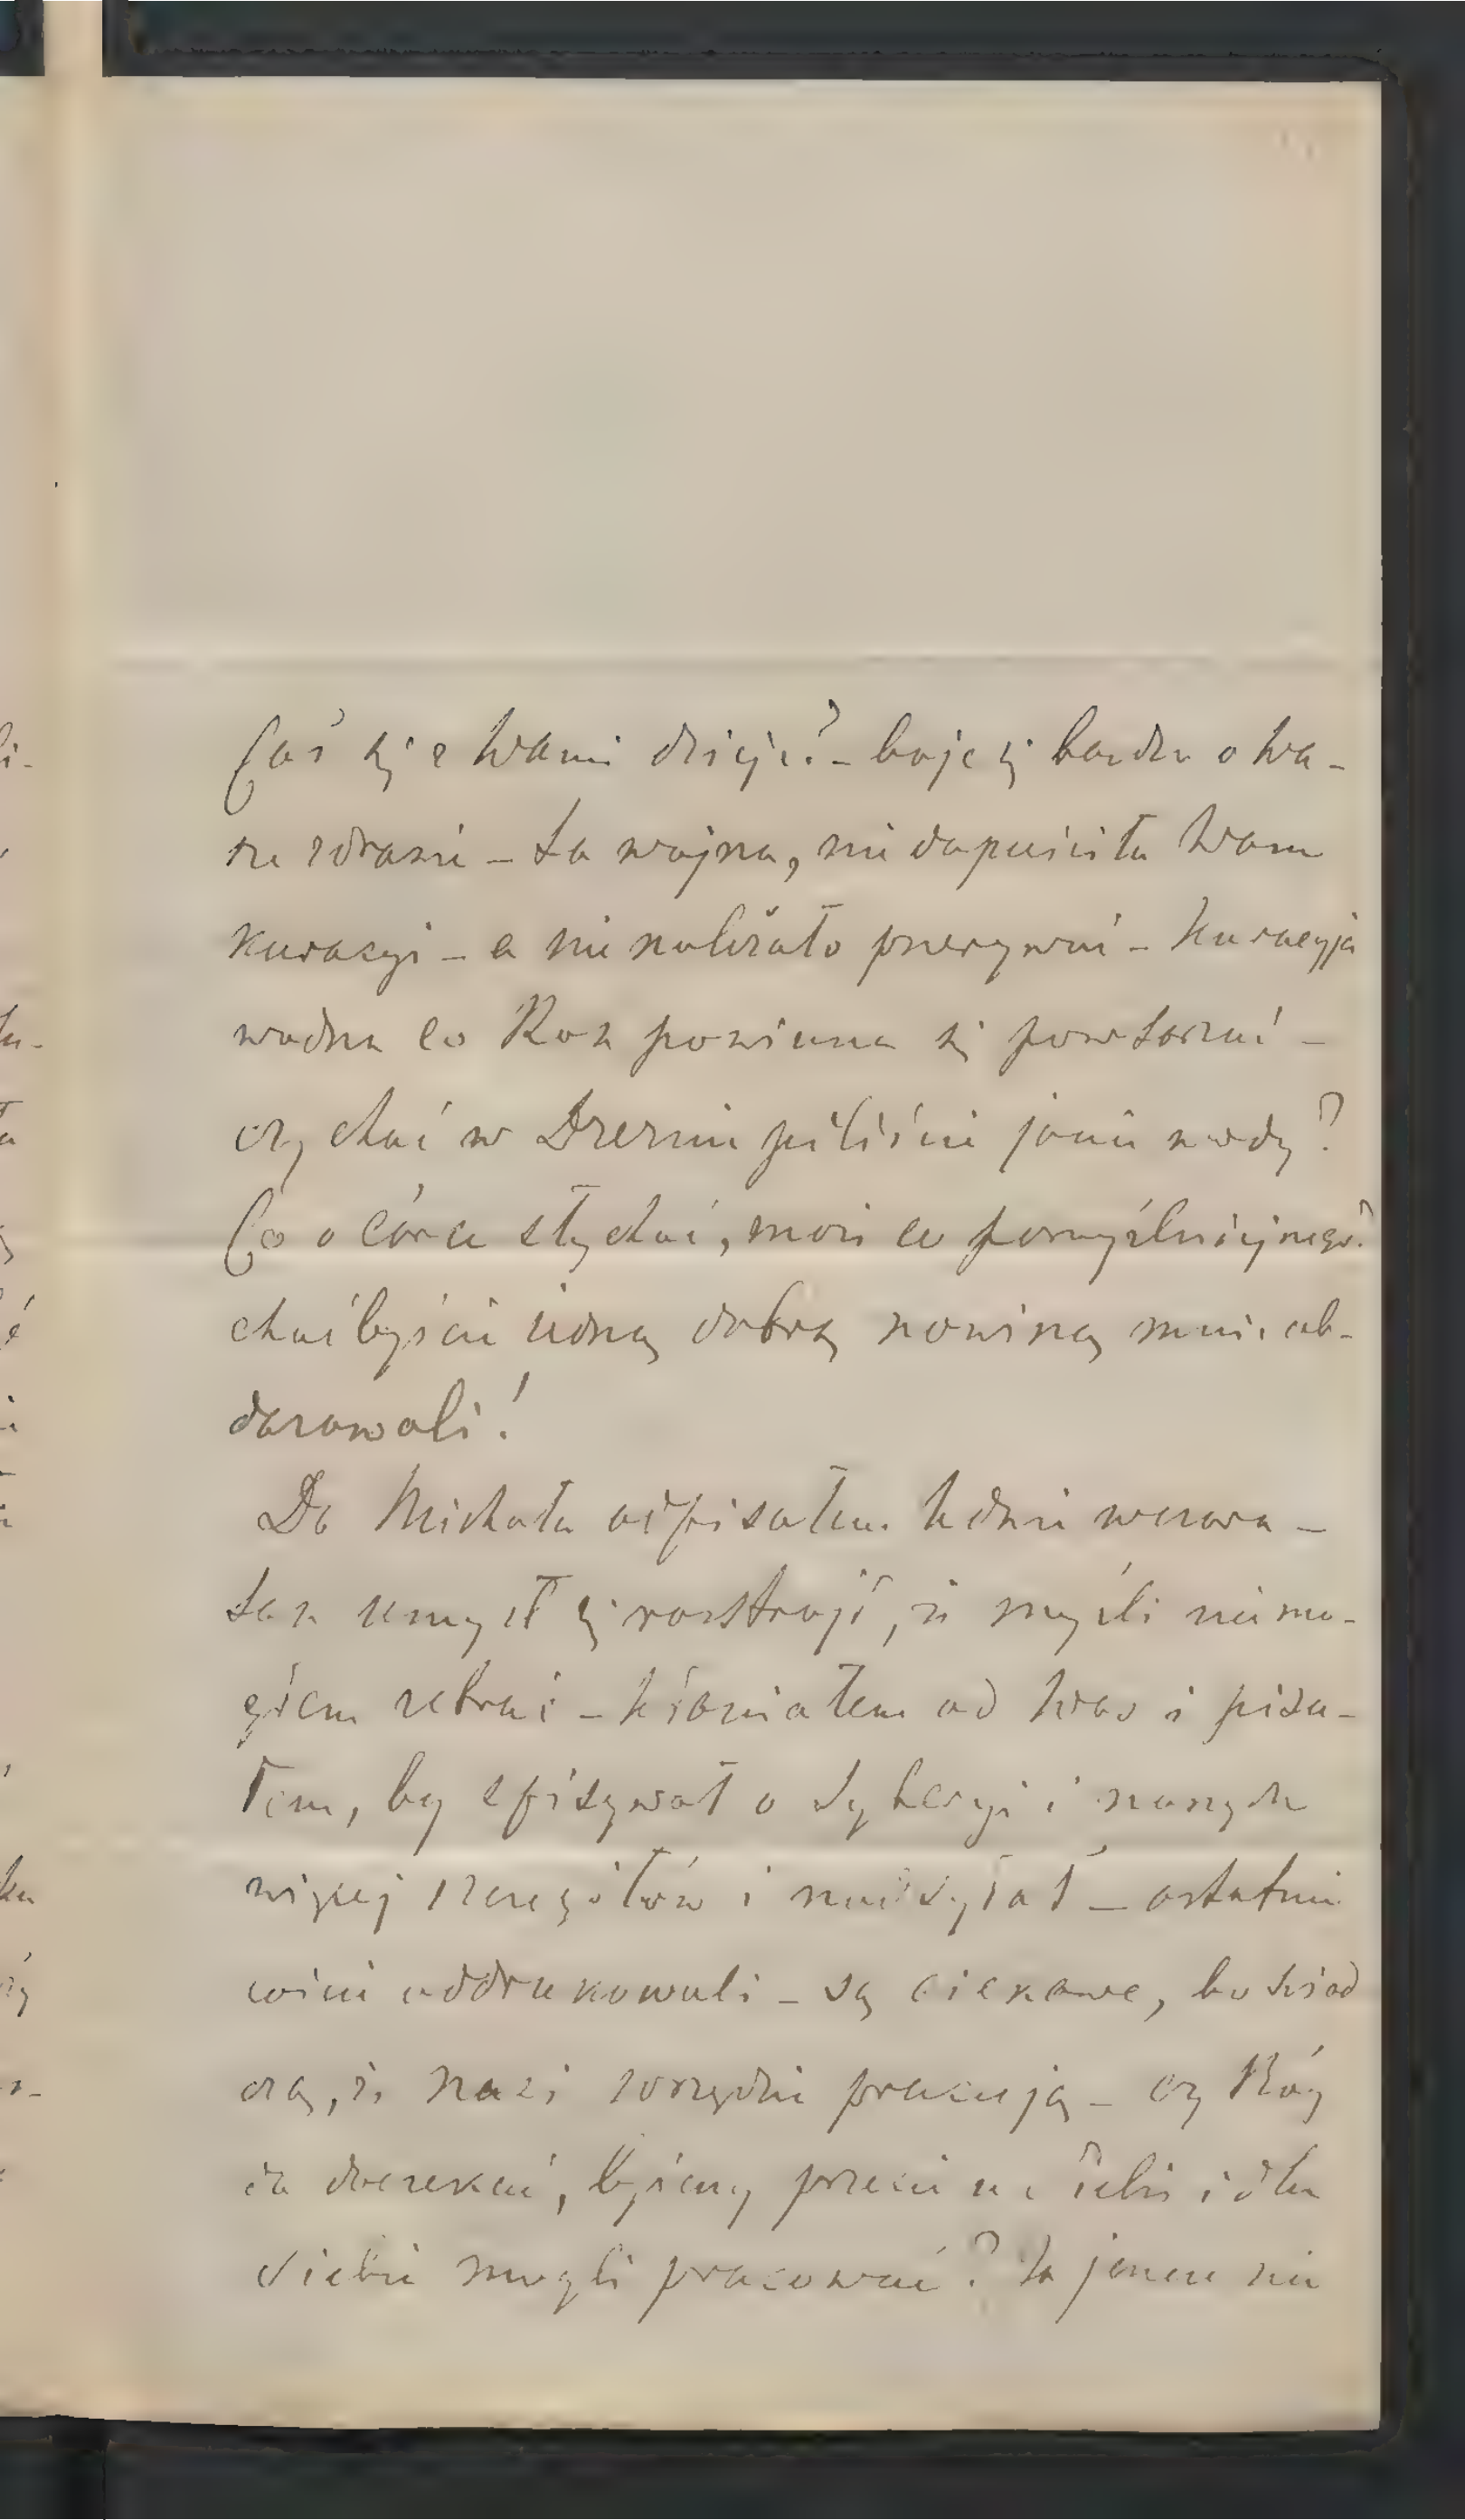 Coś się z Wami dzieje? – boję się bardzo o Wa-
sze zdrowie – ta wojna, nie dopuściła Wam
kuracyi – a nie należało przerywać – Kuracyja
wodna co Rok powinna się powtarzać –
czy choć w Dreznie piliście jakie wody?
Co o córce słychać, może co pomyślniejszego?
choćbyście jedną dobrą nowiną mnie ob-
darowali!
Do Michała odpisałem tednie wczora –
tak umysł się rozstroił, iż myśli nie mo-
głem zebrać – kłaniałem od Was i pisa-
łem, by spisywał o Syberyi i naszych
więcej szczegółów i nadsyłał – ostatnie
oddrukowali – są ciekawe, bo świad
czą, iż nasi wszędzie pracują – czy Bóg
da doczekać, byśmy przecie u siebie i dla
siebie mogli pracować? Ja jeszcze nie